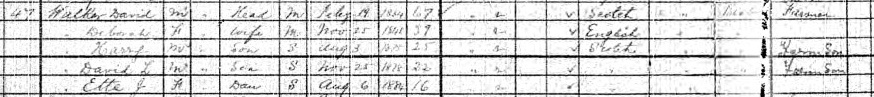 47 Walker David M " Head M Feby 19 1834 67 " " ✓ Scotch " " Farmer
Deborah F " Wife M Nov 25 39 " " ✓ English
" Harry M " Son S Aug 3 25 " " ✓ Scotch " Farm Son
" David L M " Son S Nov 25 1878 22 " " ✓ " " Farm Son
" Etta J F " Dau S Aug 6 1884 16 " " ✓ "